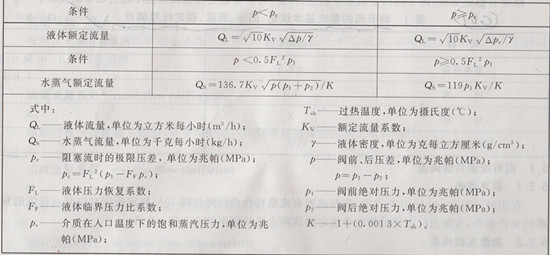 条件 p<pₛ p≥pₛ
液体额定流量 Q_L=√10K_V√Δp/γ Q_L=√10K_V√Δpₛ/γ
条件 p<0.5F_L²p₁ p≥0.5F_L²p₁
水蒸气额定流量 Qₛ=136.7K_V√p(p₁+p₂)/K Qₛ=119p₁K_V/K
式中:
Q_L——液体流量,单位为立方米每小时(m³/h);
Qₛ——水蒸气流量,单位为千克每小时(kg/h);
pₛ——阻塞流时的极限压差,单位为兆帕(MPa);
pₛ=F_L²(p₁-F_Fpᵥ);
F_L——液体压力恢复系数;
F_F——液体临界压力比系数;
pᵥ——介质在入口温度下的饱和蒸汽压力,单位为兆
帕(MPa);
T_sh——过热温度,单位为摄氏度(℃);
K_V——额定流量系数;
γ——液体密度,单位为克每立方厘米(g/cm³);
p——阀前、后压差,单位为兆帕(MPa);
p=p₁-p₂;
p₁——阀前绝对压力,单位为兆帕(MPa);
p₂——阀后绝对压力,单位为兆帕(MPa);
K——1+(0.001 3×T_sh)。